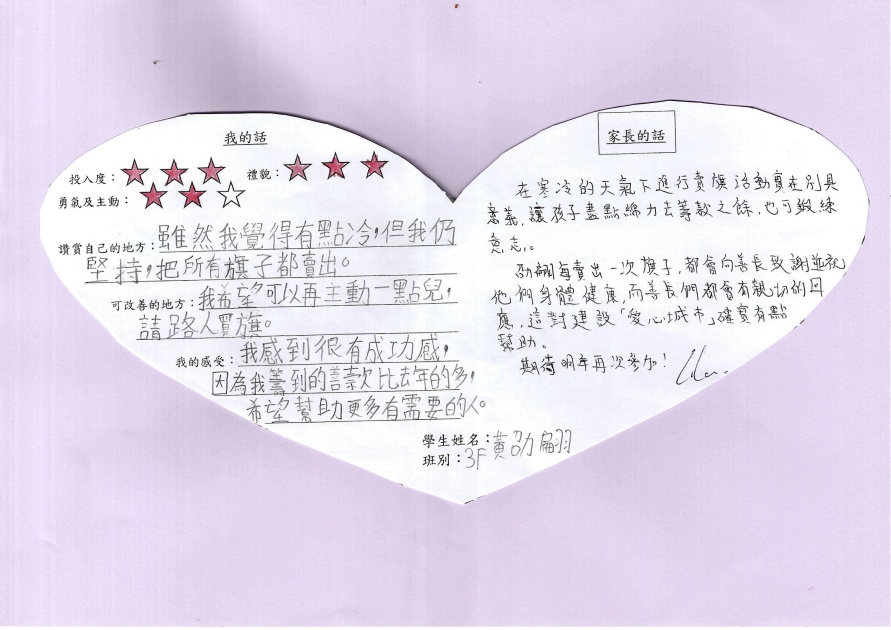 我的話
投入度：★★★ 禮貌：★★★
勇氣及主動：★★☆
讚賞自己的地方：雖然我覺得有點冷，但我仍
堅持，把所有旗子都賣出。
可改善的地方：我希望可以再主動一點兒，
請路人買旗。
我的感受：我感到很有成功感，
因為我籌到的善款比去年的多，
希望幫助更多有需要的人。
學生姓名：黃劭翩
班別：3F
家長的話
在寒冷的天氣下進行賣旗活動實在別具
意義，讓孩子盡點綿力去籌款之餘，也可鍛練
意志。
劭翩每賣出一次旗子，都會向善長致謝並祝
他們身體健康，而善長們都會有親切的回
應，這對建設「愛心城市」確實有點
幫助。
期待明年再次參加！